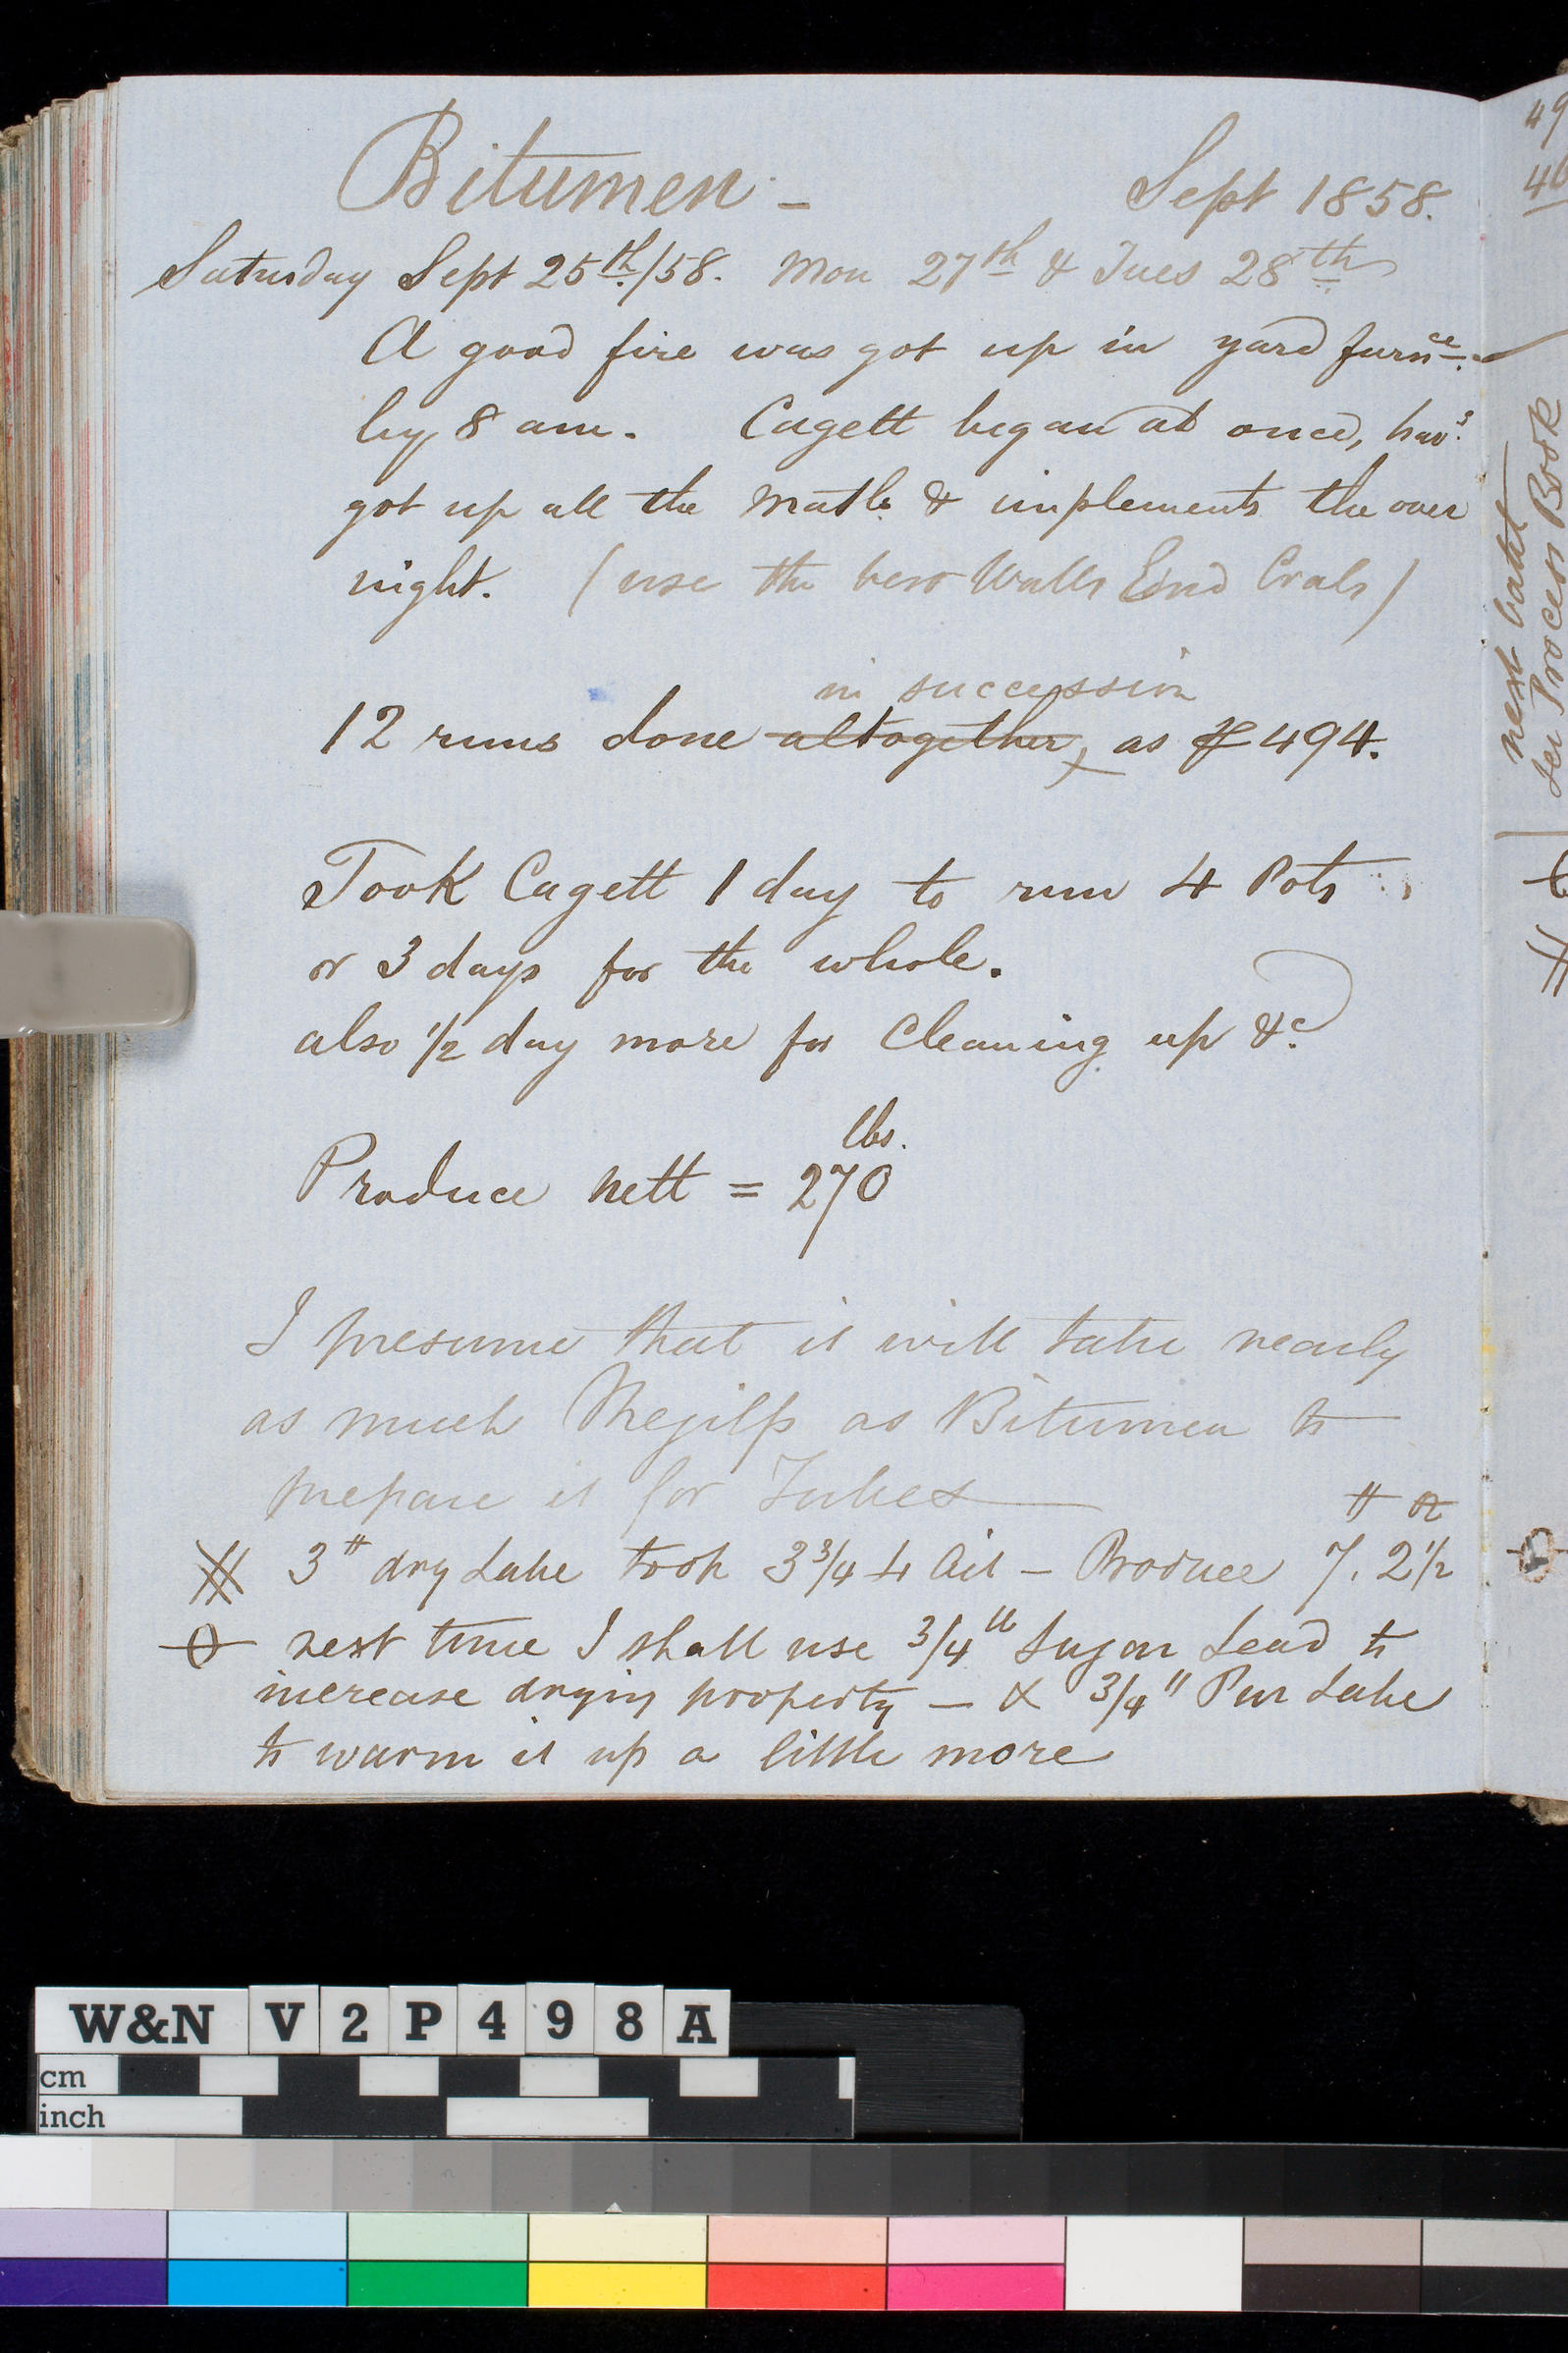 Bitumen - Sept 1858.
Saturday Sept 25th/58. Mon 27th & Tues 28th
A good fire was got up in yard furnce.
by 8 am. Cagett began at once, havg
got up all the Matls & implements the over
night. (use the best Walls End Coals)
in succession
12 runs done altogether, as P 494.
Took Cagett 1 day to run 4 Pots
or 3 days for the whole.
also 1/2 day more for Cleaning up &c
lbs.
Produce nett = 270
I presume that it will take nearly
as much Megilp as Bitumen to
prepare it for Tubes
# oz
3# dry Lake took 3 3/4 # Oil - Produce 7. 2 1/2
next time I shall use 3/4 lb Sugar Lead to
increase drying property - & 3/4 " Pur Lake
to warm it up a little more
49
46
next batch
see Process Book
W&N V2P498A
cm
inch